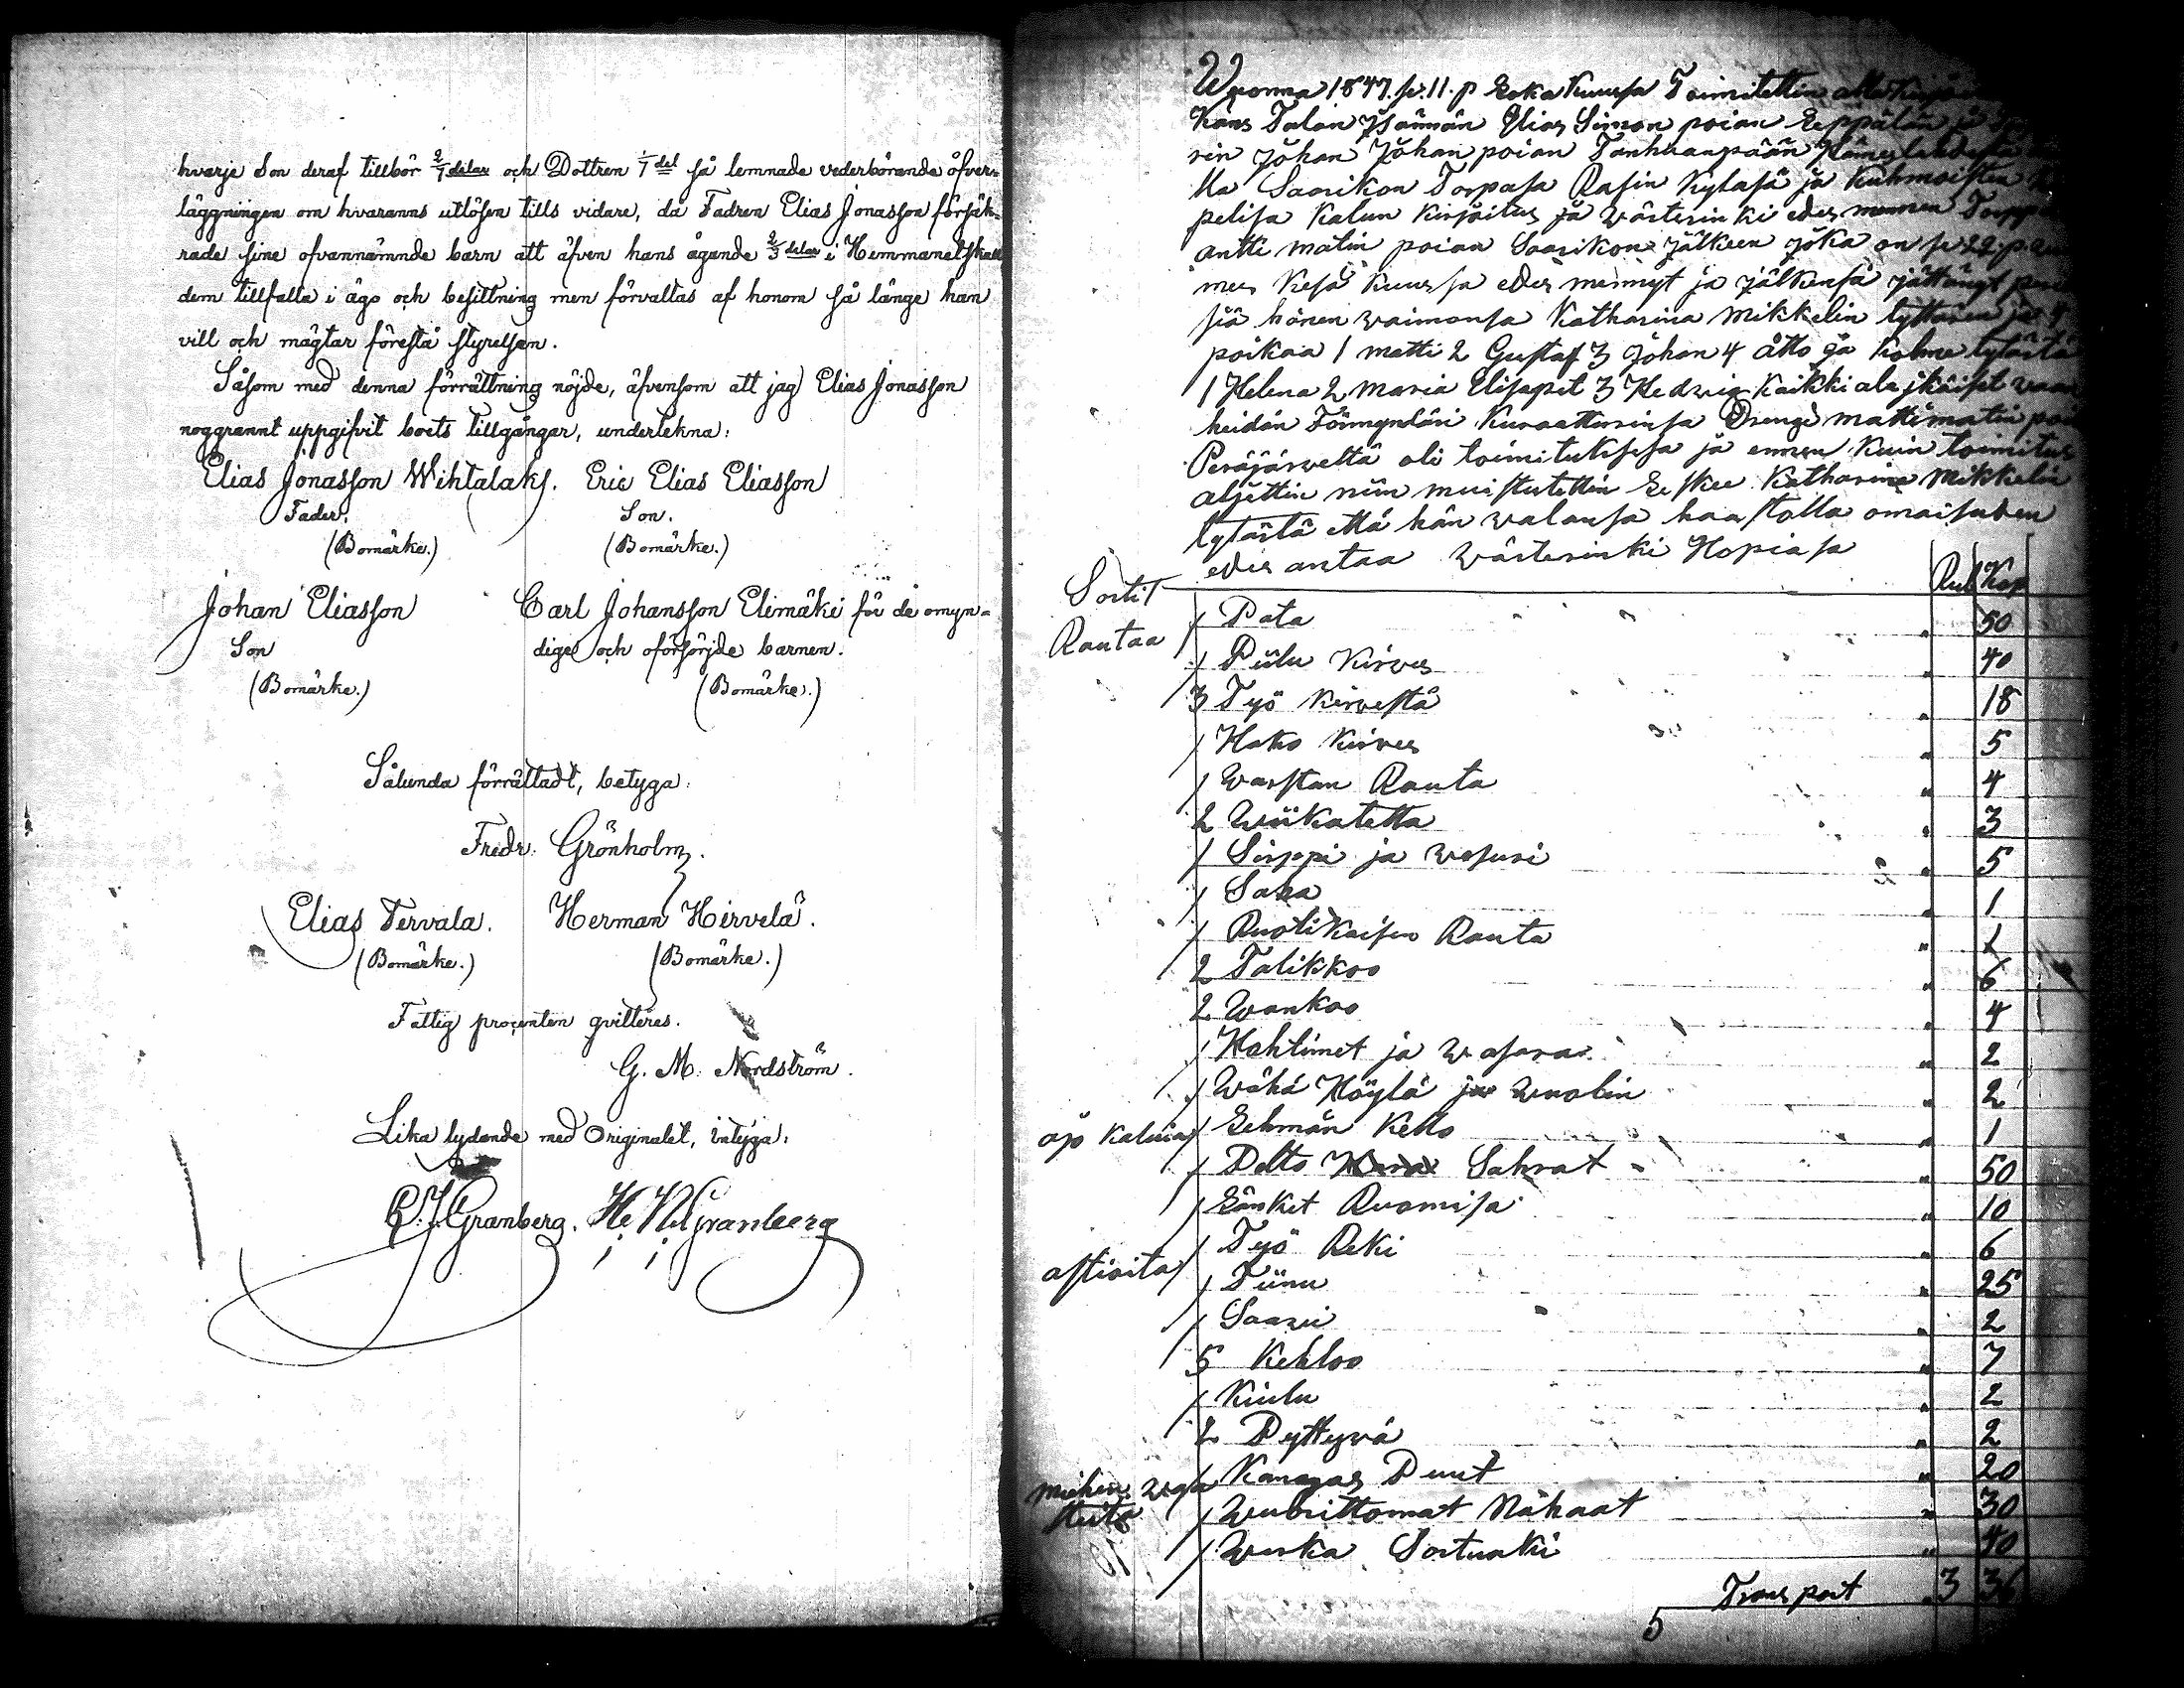 hvarje Son deraf tillbör 2/7 delar och Dottren 1/7 del så lemnade vederbörande öfver-
läggningen om hvaranns utlösen tills vidare, då Fadren Elias Jonasson försäk-
rade sine ofvannämnde barn att äfven hans ägande 2/3 delar i Hemmanet skall
dem tillfalla i ägo och besittning men förvaltas af honom så länge han
vill och mägtar förestå styrelsen.
Såsom med denna förrättning nöjde, äfvensom att jag Elias Jonasson
noggrannt uppgifvit boets tillgångar, underteckna:
Elias Jonasson Wihtalaks. Eric Elias Eliasson
Fader. Son.
(Bomärke.) (Bomärke.)
Johan Eliasson Carl Johansson Elimäki för de omyn-
Son dige och oförsörjde barnen.
(Bomärke.) (Bomärke.)
Sålunda förrättadt, betyga:
Fredr: Grönholm.
Elias Tervala. Herman Hirvelä.
(Bomärke.) (Bomärke.)
Fattig procenten qvitteres.
G. M. Nordström.
Lika lydande med Originalet, intyga:
C. J. Granberg. He. N. Granberg
Wuonna 1847. s. 11. p Loka Kuussa Toimitettin alla
Kans Talon Isännän Elias Simon poian Eeppälän ja
rin Johan Johan poian Tanhuanpään
lla Saarikon Torpasa Rasin Kylasä ja Kuhmoisten
pelisa Kalun Kirjoitus ja wärterinki edes mennen
antti matin poian Saarikon jälkeen joka on se 22 p
mes Kesä Kuussa edes mennyt ja jälkensä jättänyt
siä hänen waimonsa Katharina Mikkelin tyttären ja 4
poikaa 1 matti 2 Gustaf 3 Johan 4 åtto ja Kolme tytärtä
1 Helena 2 maria Elisapet 3 Hedvig Kaikki ala ikäiset
heidän Förmyndäri Kuraattorinsa Drengi matti matin
Peräjärweltä oli toimituksesa ja ennen Kuin toimitus
aljettin niin muistutettin Leskee Katharina Mikkelin
tytärtä että hän walansa haastolla omaisuden
edes antaa wärterinki Hopiasa
Sortit Rub Kop
Rautaa 1 Pata " 50
1 Piilu Kirves " 40
3 Työ Kirvestä " 18
1 Hako Kirves " 5
1 Warstan Rauta " 4
2 Wiikatetta " 3
1 Sirppi ja Wesuri " 5
1 Saha " 1
1 Ruotikaisen Rauta " 1
2 Talikkoo " 6
2 Wankoo " 4
1 Hohtimet ja Wasara " 2
1 Wähä Höylä ja Wuolin " 2
ajo Kaluja 1 Lehmän Kello " 1
1 Pelto Sahrat " 50
1 Länket Ruomisa " 10
1 Työ Reki " 6
astioita 1 Tiinu " 25
1 Saavi " 2
5 Kehloo " 7
1 Kiulu " 2
2 Pyttyvä " 2
1 Kangas Puut " 20
miehen waatteita 1 Wuorittomat Nahaat " 30
1 Werka Sortuuki " 40
Transport 3 36
5